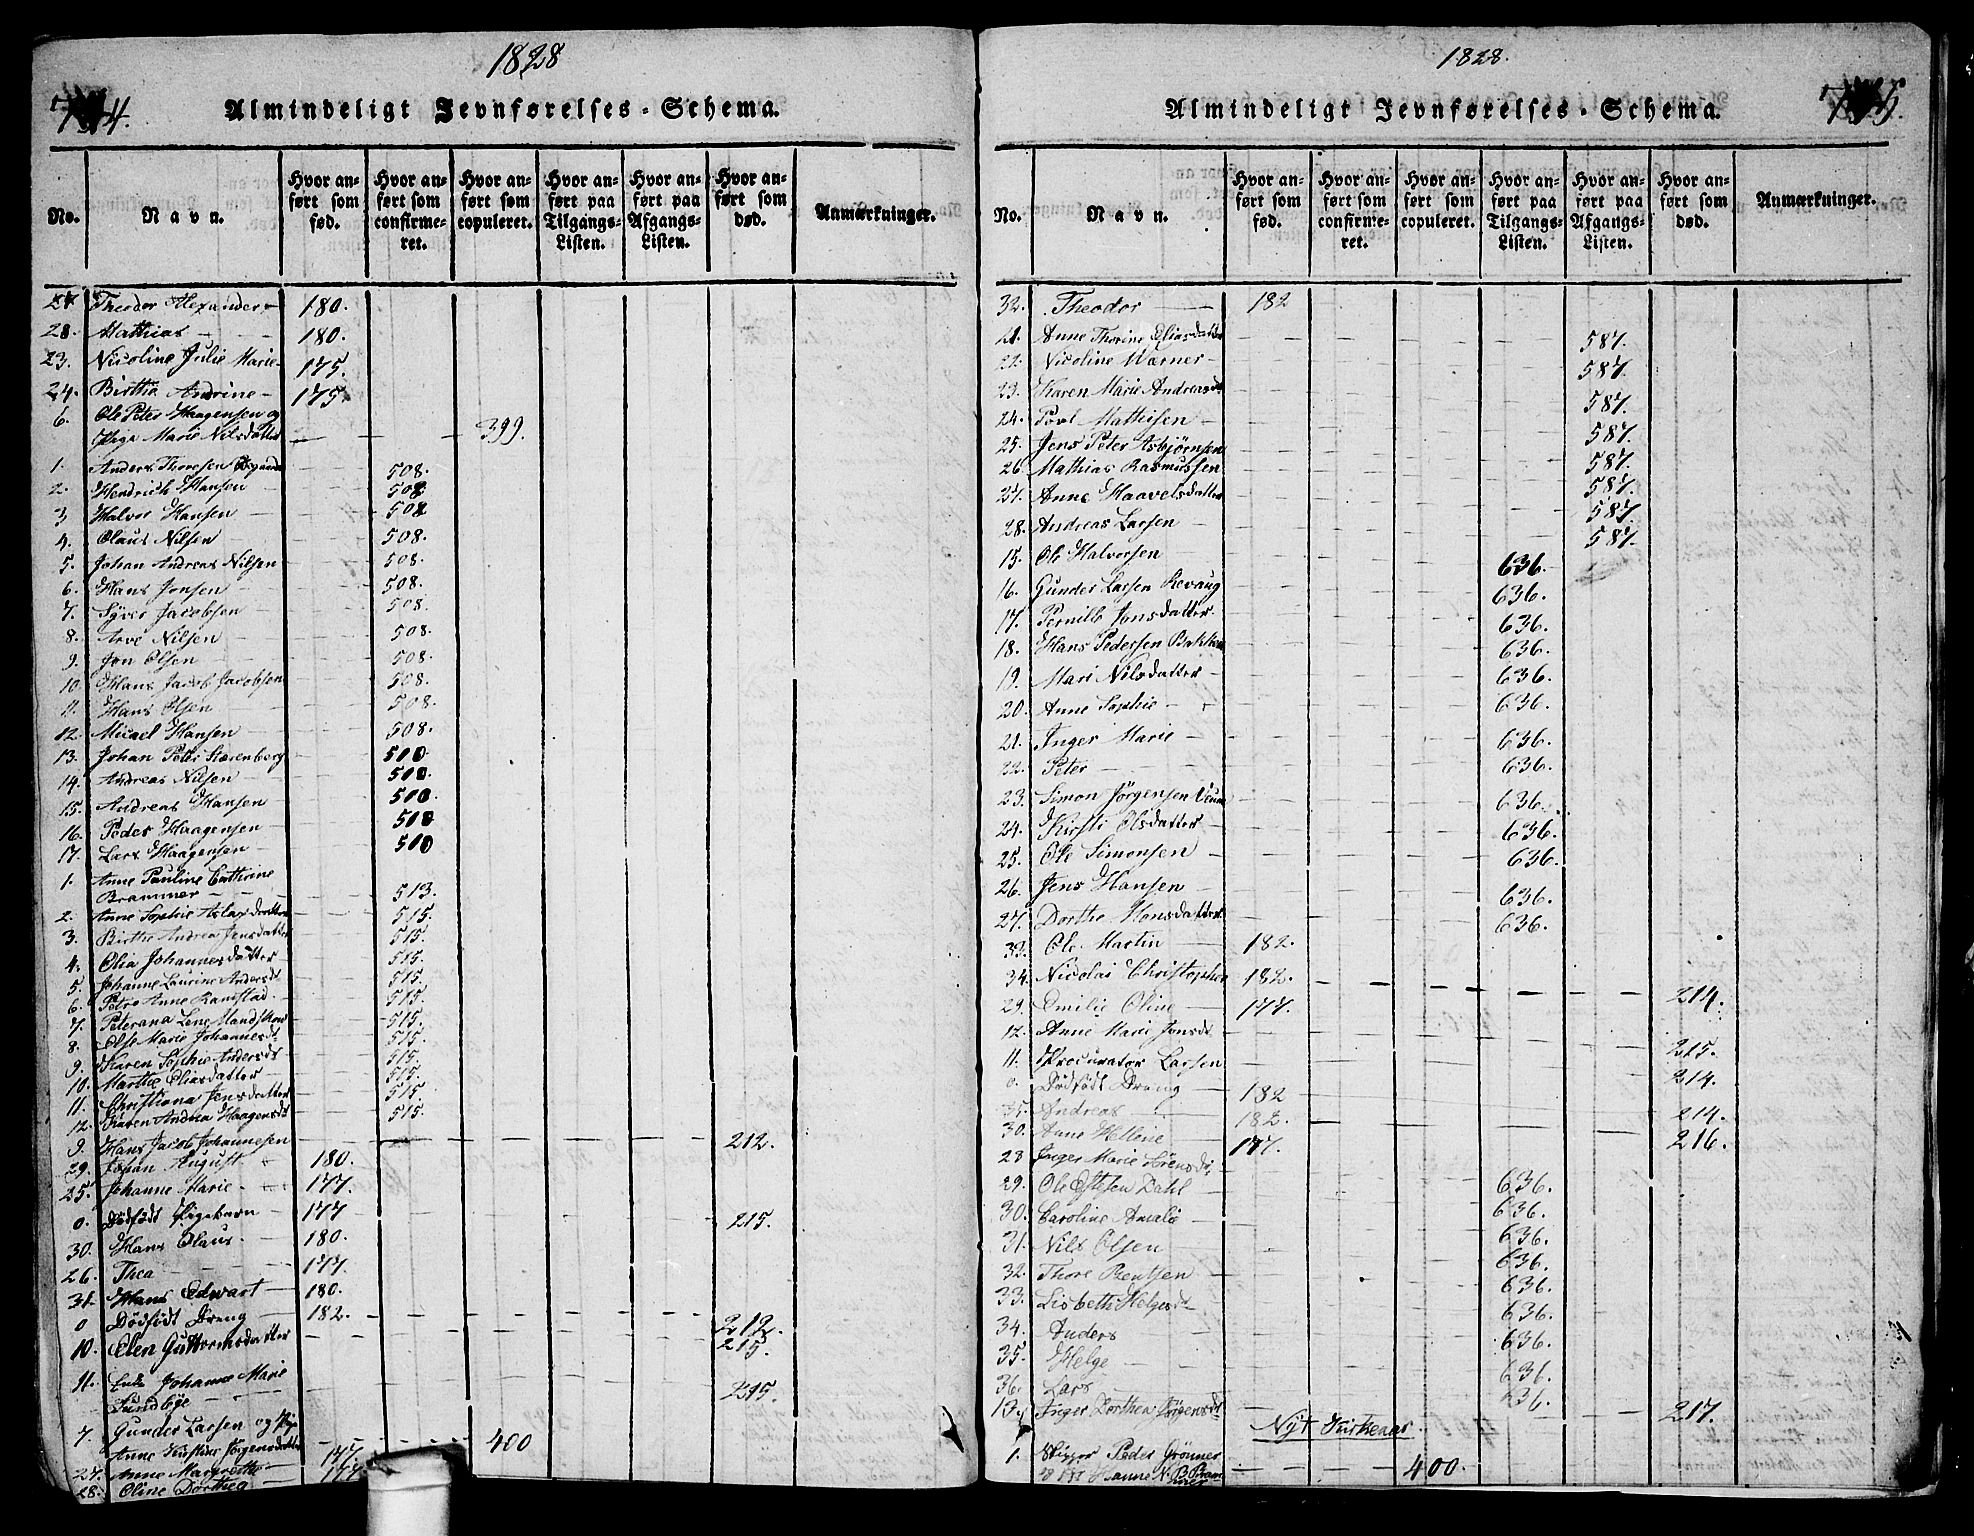 1828
Almindeligt Jevnførelses-Schema.
No.
Navn.
Hvor anført som fød.
Hvor anført som confirmeret.
Hvor anført som copuleret.
Hvor anført paa Tilgangs-Listen.
Hvor anført paa Afgangs-Listen.
Hvor anført som død.
Anmærkninger.
27 Theodor Alexander 180.
28. Mathias 180.
23. Nicoline Julie Marie 175.
24. Birthe Andrine 175.
6. Ole Peter Haagensen og
Pige Marie Nilsdatter 399.
1. Anders Thoresen 508.
2. Hendrich Hansen 508
3 Halvor Hansen 508
4. Claus Nilsen 508.
5. Johan Andreas Nilsen 508.
6. Hans Jonsen 508.
7. Syver Jacobsen 508.
8. Arve Nilsen 508.
9. Jon Olsen 508.
10. Hans Jacob Jacobsen 508.
11. Hans Olsen 508.
12. Micael Hansen 508.
13. Johan Peter Starenberg 510
14. Andreas Nilsen 510.
15. Andreas Hansen 510.
16. Peder Haagensen 510
17. Lars Haagensen 510
1. Anne Pauline Cathrine
Brammer 513.
2. Anne Sophie Aslaxdatter 515.
3. Birthe Andrea Jensdatter 515.
4. Olia Johannesdatter 515.
5. Johanne Laurine Andersdt 515.
6. Petro Anne Ramstad 515.
7. Peterana Lene Mandskow 515.
8. Else Marie Johannesdt 515.
9. Karen Sophie Andersdt 515.
10. Marthe Eliasdatter 515.
11. Christiana Jensdatter 515.
12. Karen Andrea Haagensdt 515.
9. Hans Jacob Johannesen 212.
29. Johan August 180.
25. Johanne Marie 177.
0. Dødfødt Pigebarn 177 215.
30. Hans Olaus 180.
26. Thea 177.
31. Hans Edwart 180.
0 Dødfødt Dreng 182. 212.
10. Elen Guttormsdatter 215.
11. Enke Johanne Marie
Sundbye 215.
7. Gunder Larsen og Pige
Anne Kirstine Jørgensdatter 400
27. Anne Margrethe 177.
28. Oline Dorthea 177
1828.
Almindeligt Jevnførelses-Schema.
No.
Navn.
Hvor anført som fød.
Hvor anført som confirmeret.
Hvor anført som copuleret.
Hvor anført paa Tilgangs-Listen.
Hvor anført paa Afgangs-Listen.
Hvor anført som død.
Anmærkninger.
32. Theodor 182
21. Anne Thorine Eliasdatter 587.
22. Nicoline Warner 587.
23. Karen Marie Andreasdt 587.
24. Povl Mathisen 587.
25. Jens Peter Asbjørnsen 587.
26. Mathias Rasmussen 587.
27. Anne Haavelsdatter 587
28. Andreas Larsen 587.
15. Ole Halvorsen 636.
16. Gunder Larsen Revaug 636.
17. Pernille Jonsdatter 636.
18. Hans Pedersen Bakken 636.
19. Mari Nilsdatter 636.
20. Anne Sophie 636.
21. Inger Marie 636.
22. Peter 636.
23. Simon Jørgensen Veum 636.
24. Kirsti Olsdatter 636.
25. Ole Simonsen 636.
26. Jens Hansen 636.
27. Dorthe Hansdatter 636.
33. Ole Martin 182.
34. Nicolai Christopher 182. 214.
29. Emilie Oline 177.
12. Anne Marie Jonsdt 215.
11. Procurator Larsen 214.
0. Dødfødt Dreng 182 214.
35. Andreas 182. 216.
30. Anne Hellene 177.
28 Inger Marie Sørensdt 636.
29. Ole Estesen Dahl 636.
30. Caroline Amalie 636.
31. Nils Olsen 636.
32. Thore Bentsen 636.
33. Lisbeth Helgesdt 636.
34. Anders 636.
35. Helge 636.
36. Lars 636.
13. Inger Dorthea Jørgensdt 217.
Nyt Kirkeaar.
1. Skipper Peder Grønner
400.